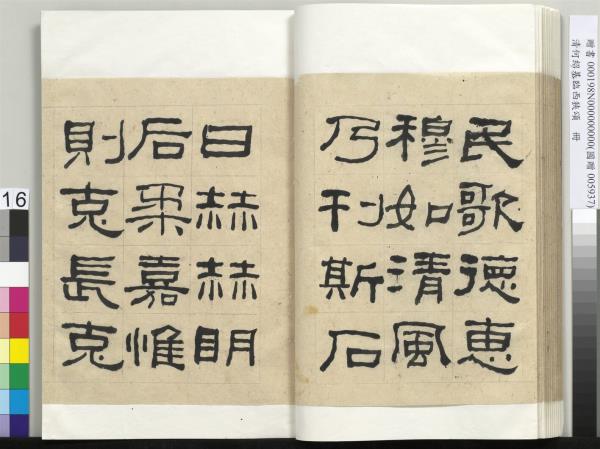 民歌德惠
穆如清風
乃刊斯石
曰赫赫明
后柔嘉惟
則克長克
贈書 000198N000000000(國贈 005937)
清何紹基臨西狹頌 冊
16